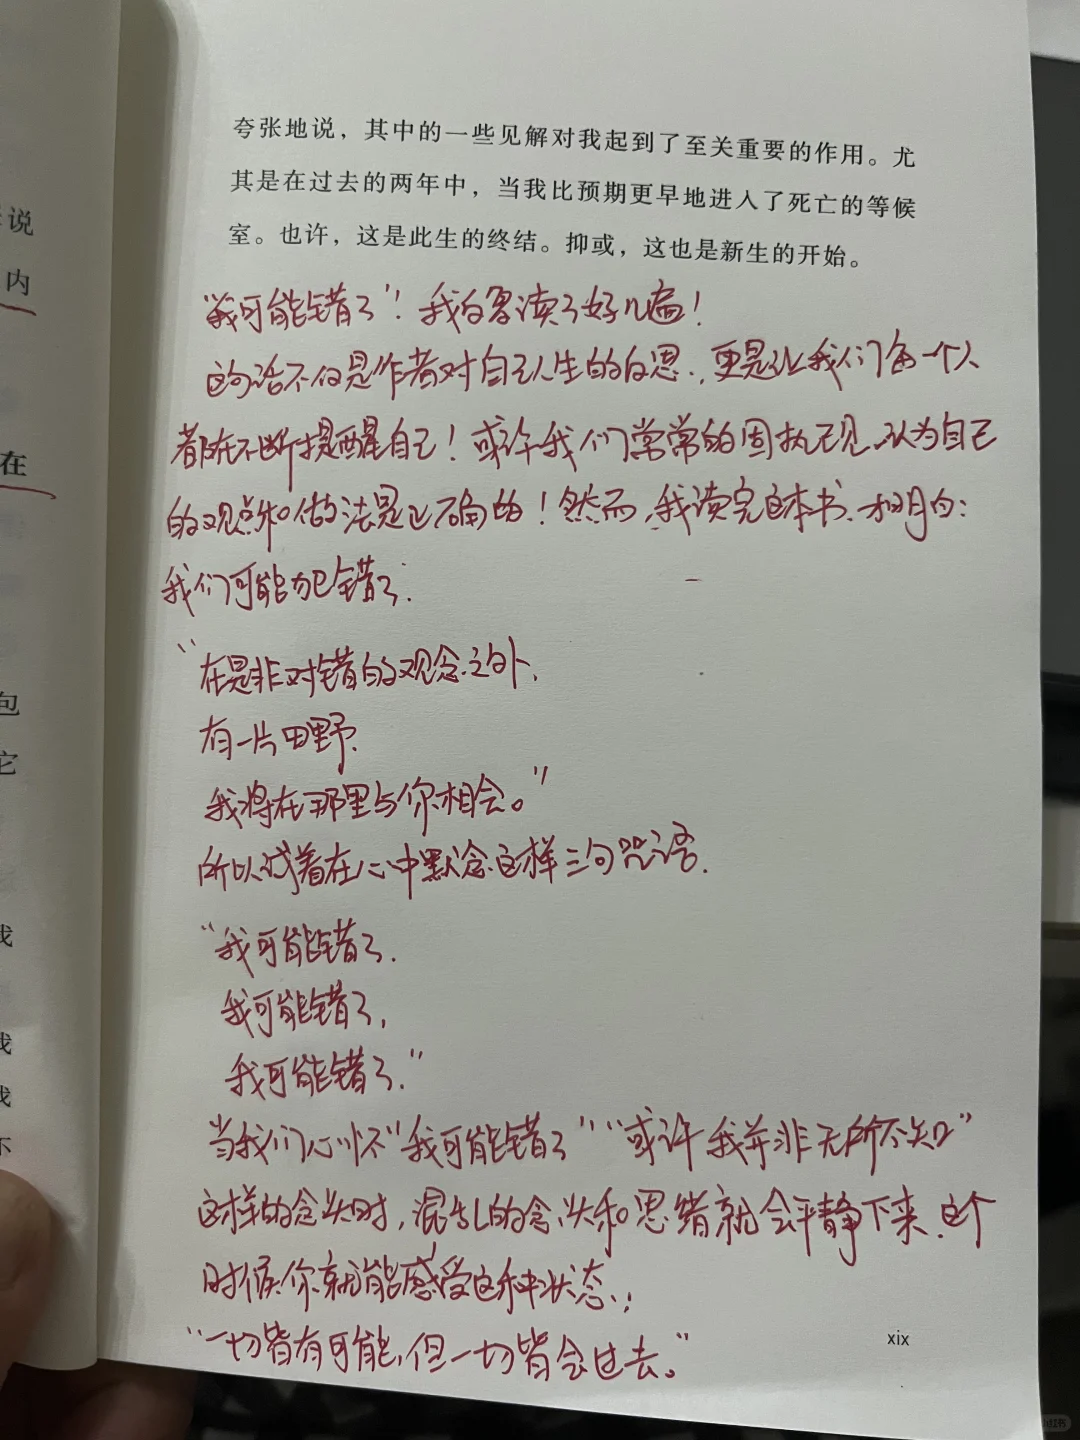 夸张地说，其中的一些见解对我起到了至关重要的作用。尤
其是在过去的两年中，当我比预期更早地进入了死亡的等候
室。也许，这是此生的终结。抑或，这也是新生的开始。
“我可能错了”！我白字读了好几遍！
这句话不仅是作者对自己人生的自思.，更是让我们每一个人
都在不断提醒自己！或许我们常常的固执己见、认为自己
的观点和做法是正确的！然而，我读完这本书、才明白：
我们可能犯错了.
“在是非对错的观念之外、
有一片田野.
我将在那里与你相会。”
所以试着在心中默念这样三句咒语.
“我可能错了.
我可能错了,
我可能错了.”
当我们心怀“我可能错了”“或许我并非无所不知”
这样的念头时，混乱的念头和思绪就会平静下来、这个
时候你就能感受这种状态：
“一切皆有可能，但一切皆会过去。”
xix
说
内
在
包
它
我
我
我
不
小红书